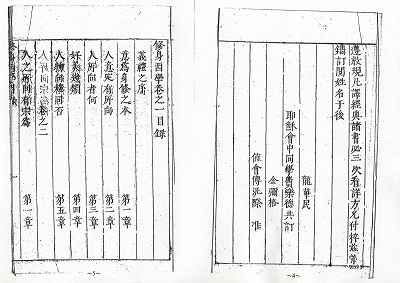 遵敎規凡譯經典諸書必三次看詳方允付梓茲
鐫訂閱姓名于後
龍華民
耶穌會中同學費樂德共訂
金彌格
值會傅汎際 准
-4-
修身西學卷之一目錄
義禮之序
意爲身修之本 第一章
人意定有所向 第二章
人所向者何 第三章
好美幾類 第四章
人總向同否 第五章
卷之二
人之所向有宗爲 第一章
-5-